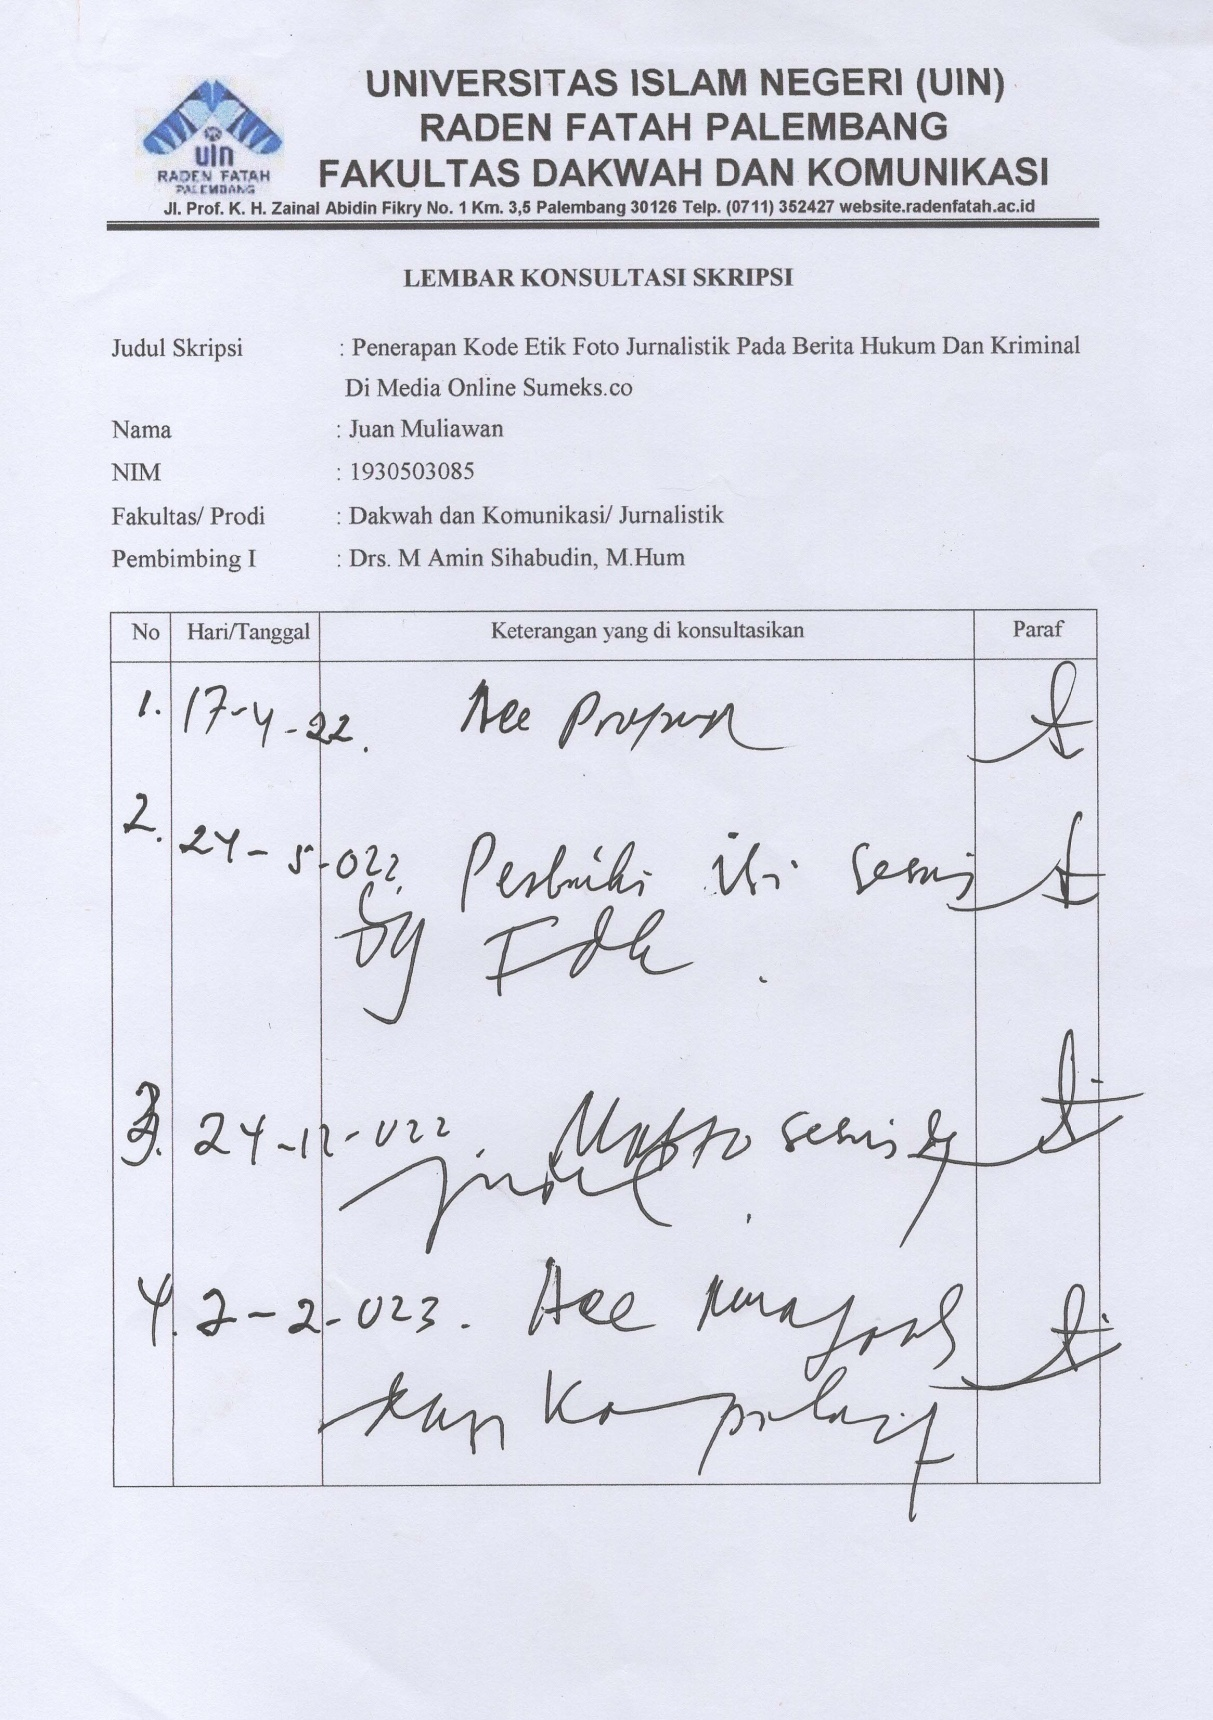 UNIVERSITAS ISLAM NEGERI (UIN)
RADEN FATAH PALEMBANG
FAKULTAS DAKWAH DAN KOMUNIKASI
uin
RADEN FATAH
PALEMBANG
Jl. Prof. K. H. Zainal Abidin Fikry No. 1 Km. 3,5 Palembang 30126 Telp. (0711) 352427 website.radenfatah.ac.id
LEMBAR KONSULTASI SKRIPSI
Judul Skripsi : Penerapan Kode Etik Foto Jurnalistik Pada Berita Hukum Dan Kriminal
Di Media Online Sumeks.co
Nama : Juan Muliawan
NIM : 1930503085
Fakultas/ Prodi : Dakwah dan Komunikasi/ Jurnalistik
Pembimbing I : Drs. M Amin Sihabudin, M.Hum
No Hari/Tanggal Keterangan yang di konsultasikan Paraf
1. 17-4-22. Acc
2. 24-5-022. Perbaiki isi sesuai
dg
3. 24-12-022. sesuai dg
judul.
4. 2-2-023. Acc